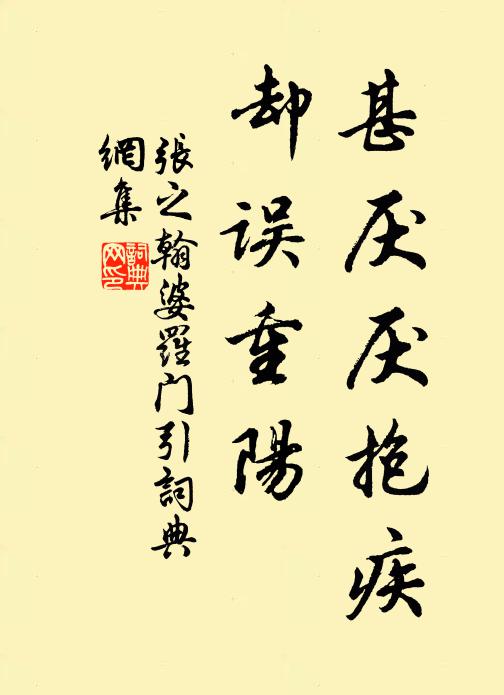 甚厌厌抱疾
却误重陽
張之翰婆羅门引詞典
網集
詞典
网印